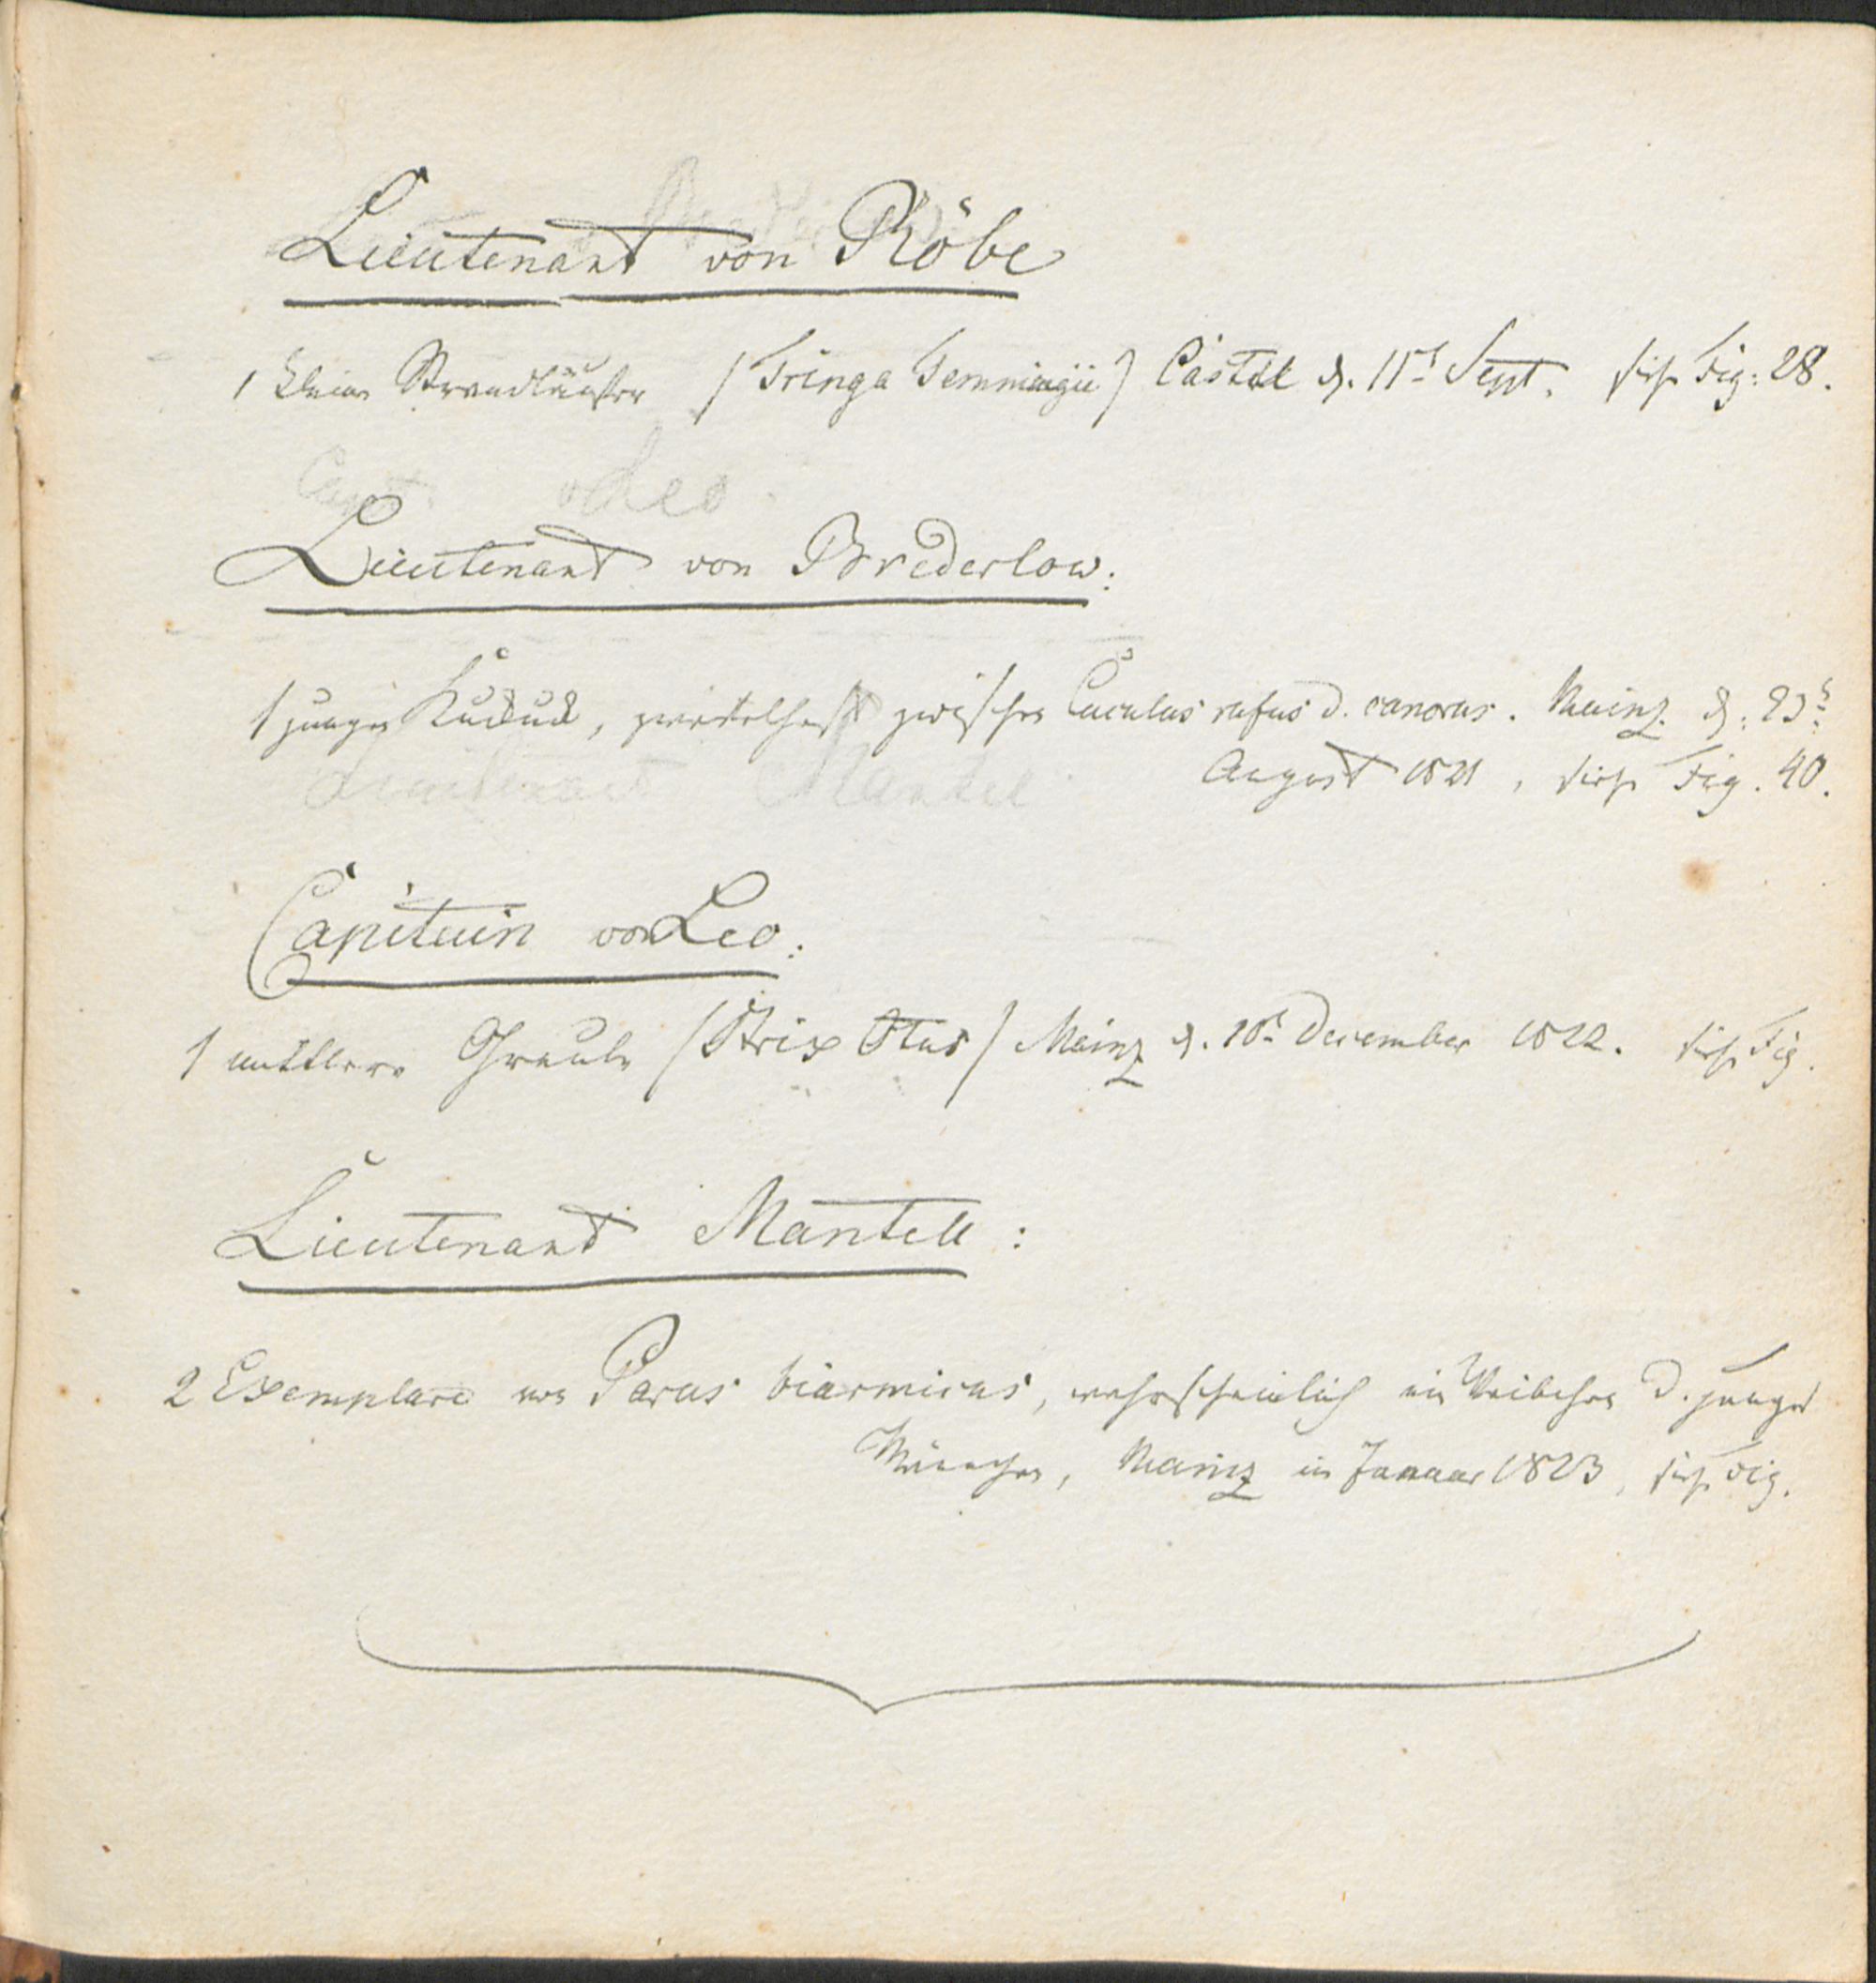 Lieutenant von Röbe
1 kleiner Strandläufer (Tringa Temmingii) Castel d. 11t Sept. sieh Fig: 28.
Capt. v Leo
Lieutenant von Brederlow:
1 junger Kuckuck, zweifelhaft zwischen Cuculus rufus u. canorus. Mainz d: 23t
August 1821, siehe Fig. 40.
Lieutenant Mantel
Capitain von Leo:
1 mittlere Ohreule (Strix Otus) Mainz d. 10t December 1822. sieh Fig.
Lieutenant Mantell:
2 Exemplare von Parus biarmicus, wahrscheinlich ein Weibchen u. junges
Männchen, Mainz im Januar 1823, sieh Fig.